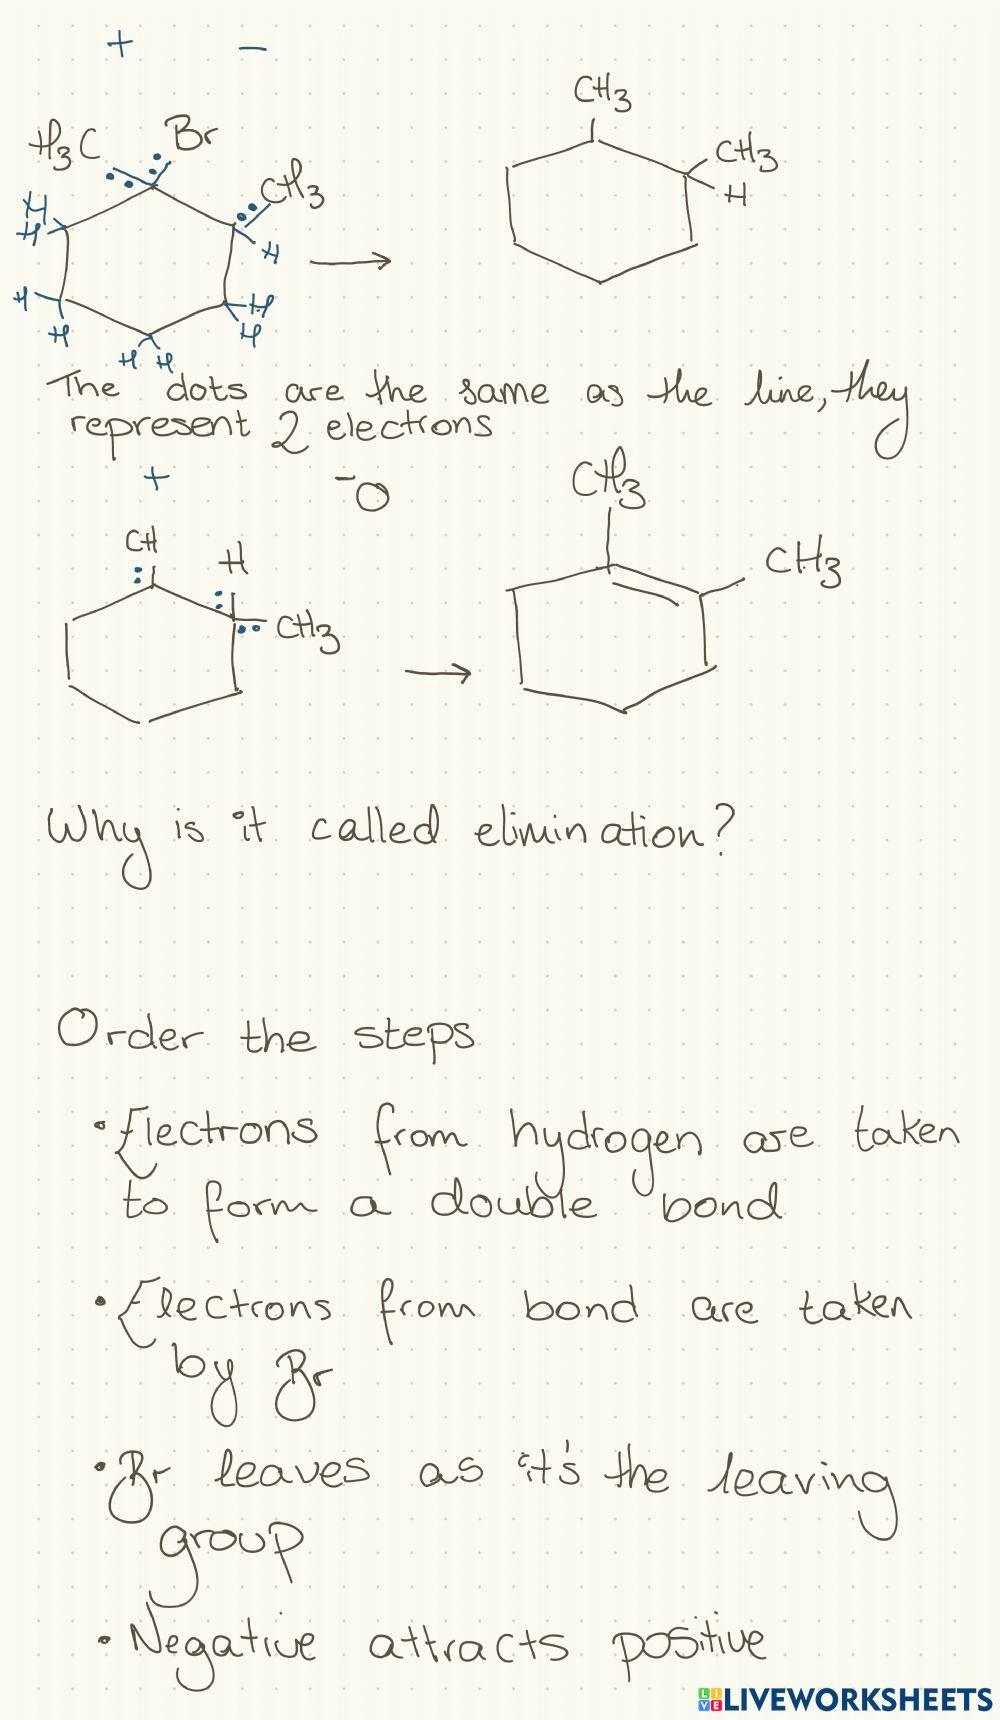 + −
H₃C Br
CH₃
H
H
H
H
H
H
H
H H
H
CH₃
CH₃
H
The dots are the same as the line, they
represent 2 electrons
+ ⁻O
CH
H
CH₃
CH₃
CH₃
Why is it called elimination?
Order the steps
• Electrons from hydrogen are taken
to form a double bond
• Electrons from bond are taken
by Br
• Br leaves as it's the leaving
group
• Negative attracts positive
LIVEWORKSHEETS